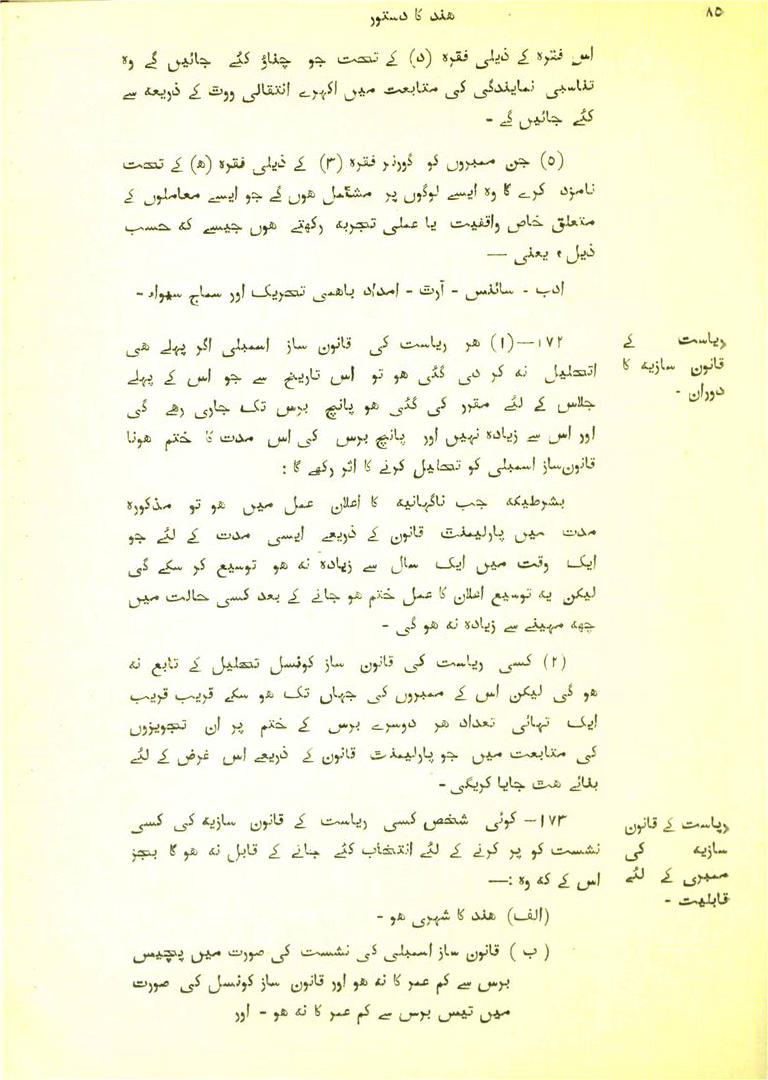 ٨٥
هند کا دستور
اس فقرہ کے ذیلی فقرہ (د) کے تحت جو چناؤ کئے جائیں گے وہ
تناسبی نمایندگی کی متابعت میں اکہرے انتقالی ووٹ کے ذریعہ سے
کئے جائیں گے -
(٥) جن ممبروں کو گورنر فقرہ (٣) کے ذیلی فقرہ (ھ) کے تحت
نامزد کرے گا وہ ایسے لوگوں پر مشتمل ھوں گے جو ایسے معاملوں کے
متعلق خاص واقفیت یا عملی تجربہ رکھتے ھوں جیسے کہ حسب
ذیل ، یعنی —
ادب - سائنس - آرٹ - امداد باھمی تحریک اور سماج سیوا -
ریاست کے
قانون سازیہ کا
دوران -
١٧٢—(١) ھر ریاست کی قانون ساز اسمبلی اگر پہلے ھی
تحلیل نہ کر دی گئی ھو تو اس تاریخ سے جو اس کے پہلے
جلاس کے لئے مقرر کی گئی ھو پانچ برس تک جاری رھے گی
اور اس سے زیادہ نہیں اور پانچ برس کی اس مدت کا ختم ھونا
قانون ساز اسمبلی کو تحلیل کرنے کا اثر رکھے گا :
بشرطیکہ جب ناگہانیہ کا اعلان عمل میں ھو تو مذکورہ
مدت میں پارلیمنٹ قانون کے ذریعے ایسی مدت کے لئے جو
ایک وقت میں ایک سال سے زیادہ نہ ھو توسیع کر سکے گی
لیکن یہ توسیع اعلان کا عمل ختم ھو جانے کے بعد کسی حالت میں
چھہ مہینے سے زیادہ نہ ھو گی -
(٢) کسی ریاست کی قانون ساز کونسل تحلیل کے تابع نہ
ھو گی لیکن اس کے ممبروں کی جہاں تک ھو سکے قریب قریب
ایک تہائی تعداد ھر دوسرے برس کے ختم پر ان تجویزوں
کی متابعت میں جو پارلیمنٹ قانون کے ذریعے اس غرض کے لئے
بنائے ھٹ جایا کریگی -
ریاست کے قانون
سازیہ کی
ممبری کے لئے
قابلیت -
١٧٣— کوئی شخص کسی ریاست کے قانون سازیہ کی کسی
نشست کو پر کرنے کے لئے انتخاب کئے جانے کے قابل نہ ھو گا بجز
اس کے کہ وہ :—
(الف) ھند کا شہری ھو -
(ب) قانون ساز اسمبلی کی نشست کی صورت میں پچیس
برس سے کم عمر کا نہ ھو اور قانون ساز کونسل کی صورت
میں تیس برس سے کم عمر کا نہ ھو - اور